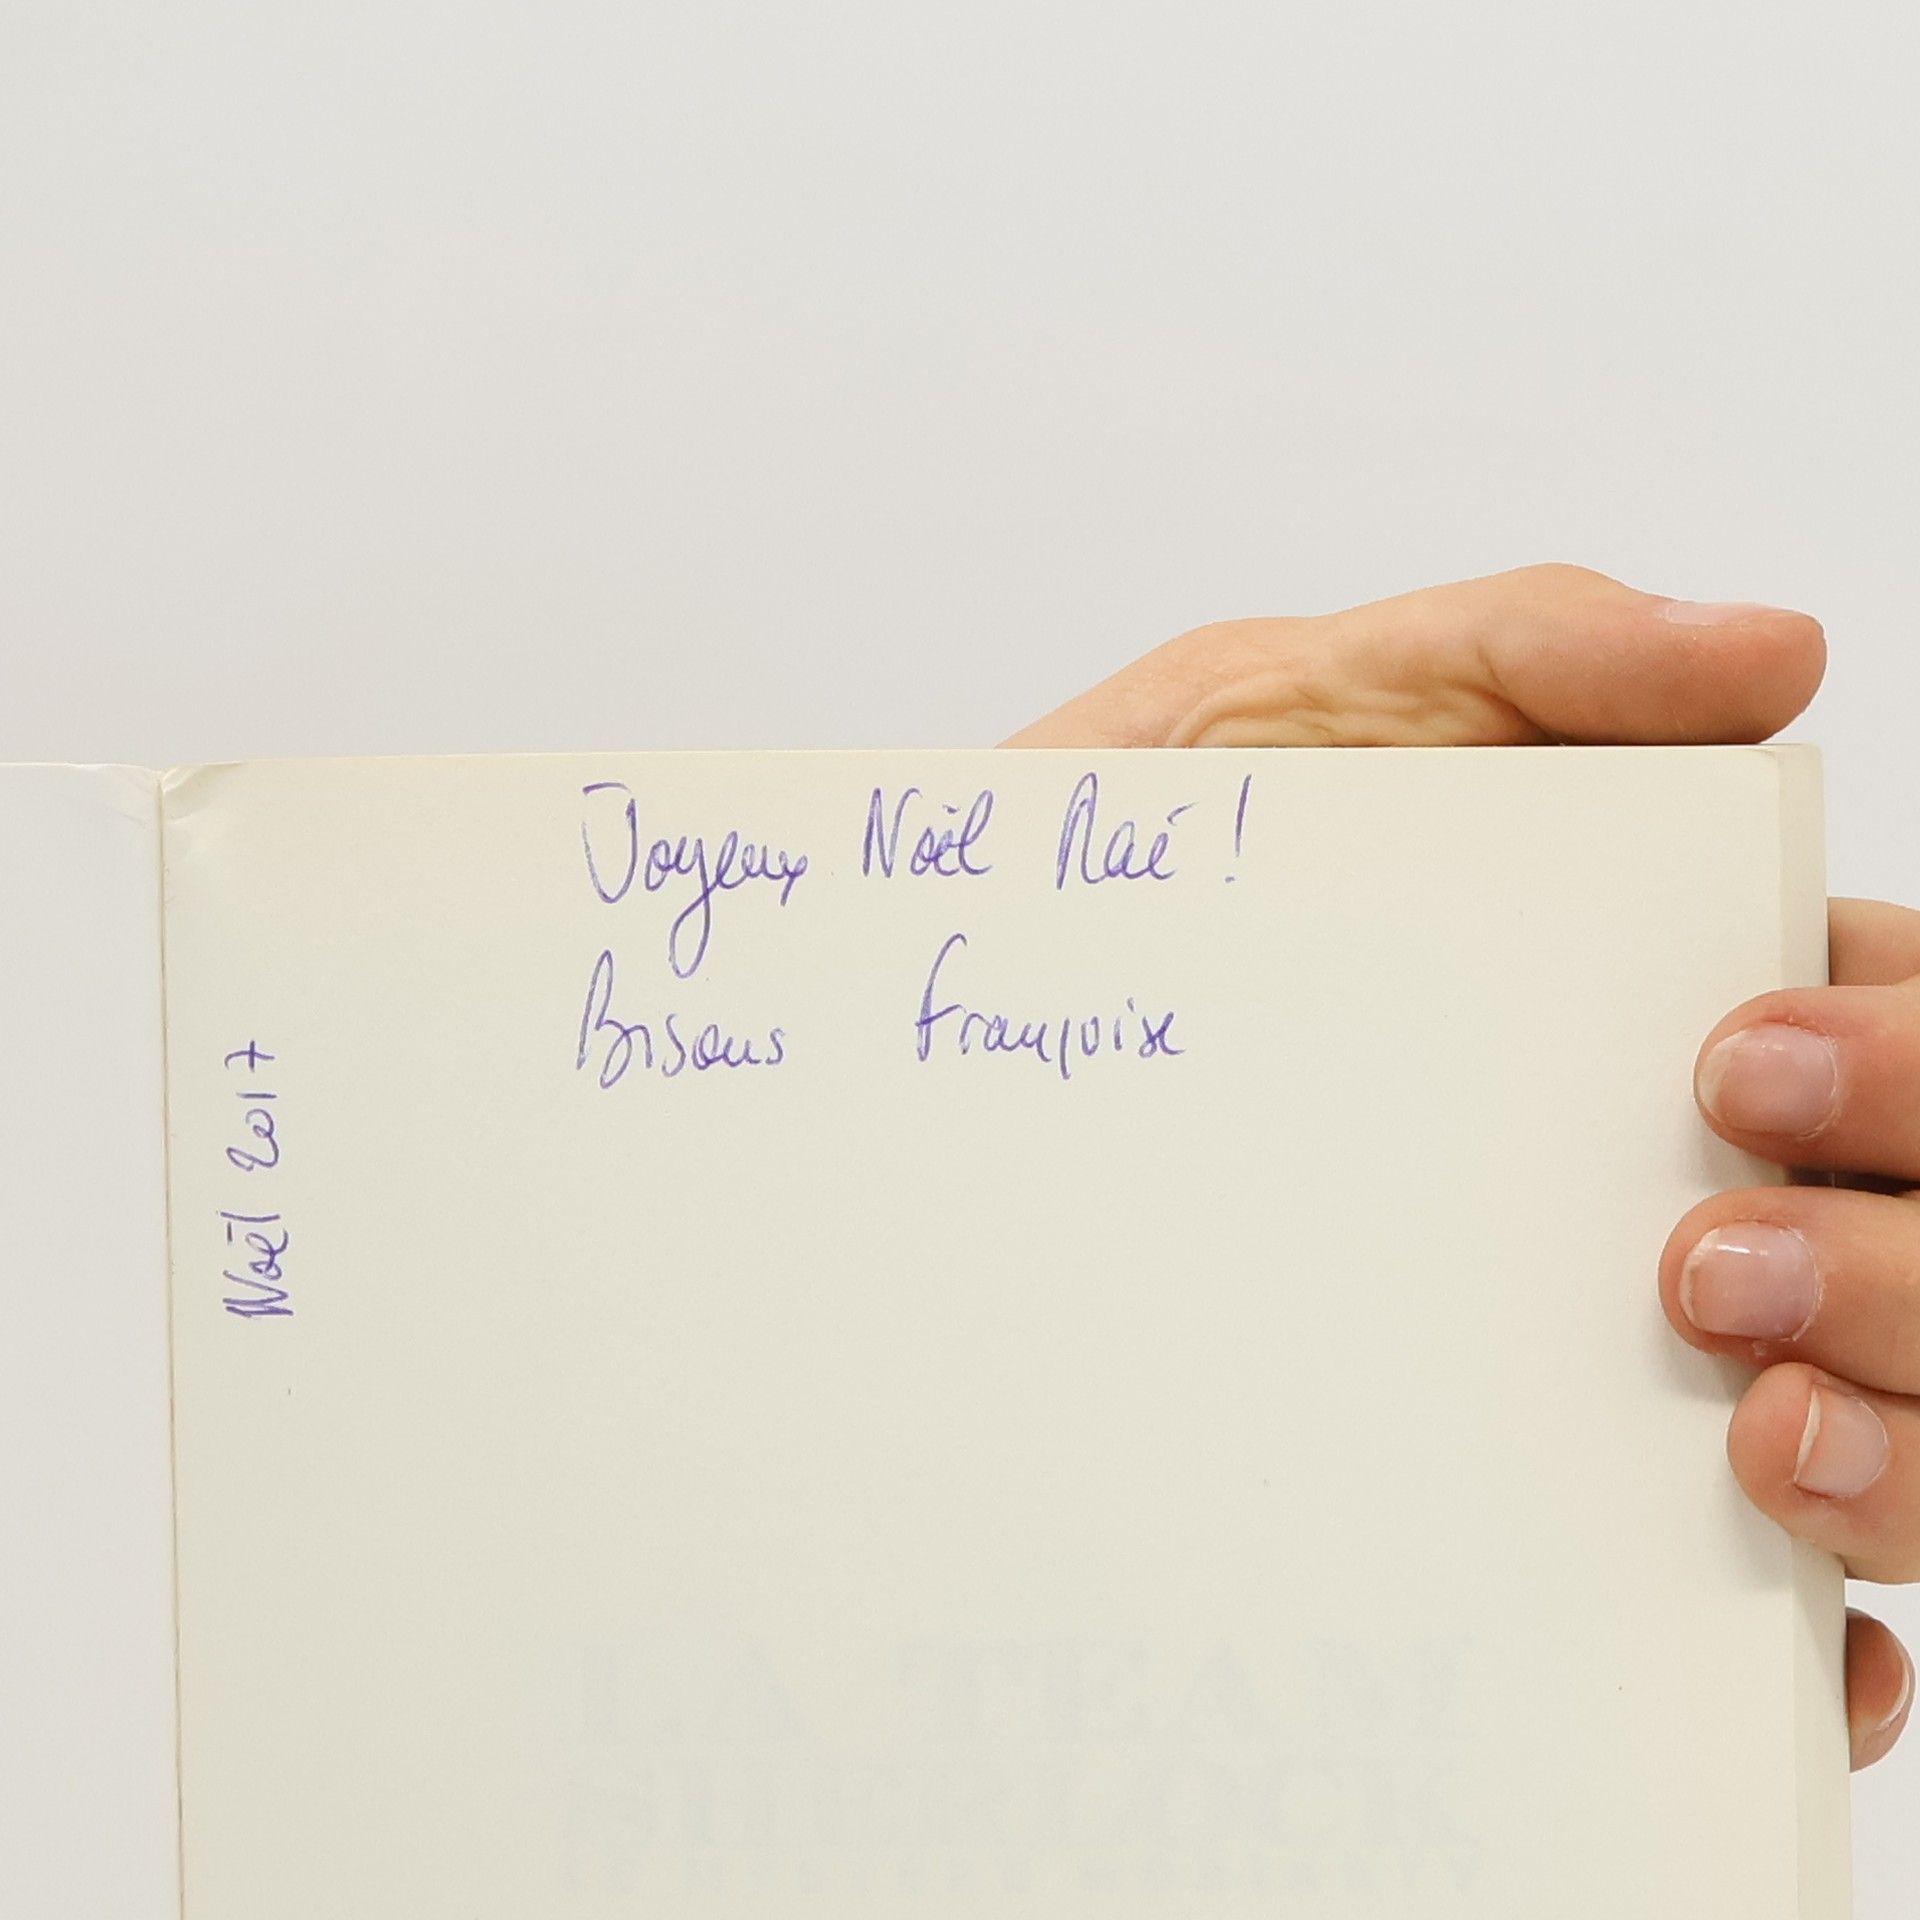 Joyeux Noël Raé !
Bisous Françoise
Noël 2017